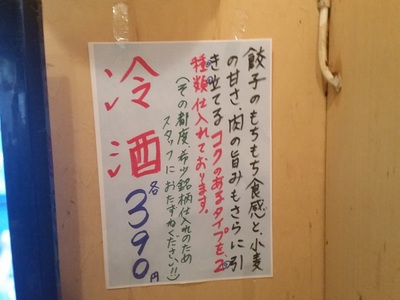 餃子のもちもち食感と、小麦
の甘さ、肉の旨みもさらに引
き立てるコクのあるタイプを、2
種類仕入れております。
(その都度希少銘柄仕入れのため
スタッフにおたずねください!!)
冷酒
各390円